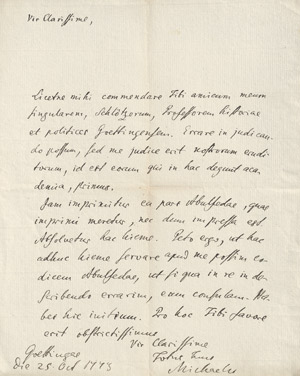 Vir Clarissime,
Licetne mihi commendare Tibi amicum meum
singularem, Schlötzerum, Professorem Historiae
et politices Goettingensem. Errare in judican-
do possum, sed me judice erit nostrorum erudi-
torum, id est eorum qui in hac degunt aca-
demia,
Jam imprimitur ea pars Abulfedae, quae
imprimi meretur, nec dum impressa est
Absolvetur hac hieme. Peto ergo, ut hac
adhuc hieme servare apud me possim co-
dicem Abulfedae, ut si qua in re in de-
scribendo erraverim, eum consulam. Ha-
bes hic initium. Pro hoc Tibi favore
erit obstrictissimus
Vir Clarissime
Goettingae Totus Tuus
die 25 Oct 1773 Michaelis